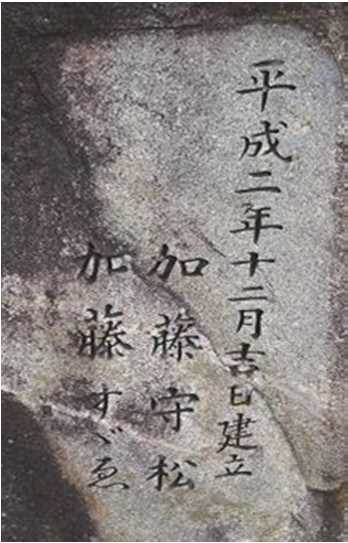 平成二年十二月吉日建立
加藤守松
加藤すゞゑ